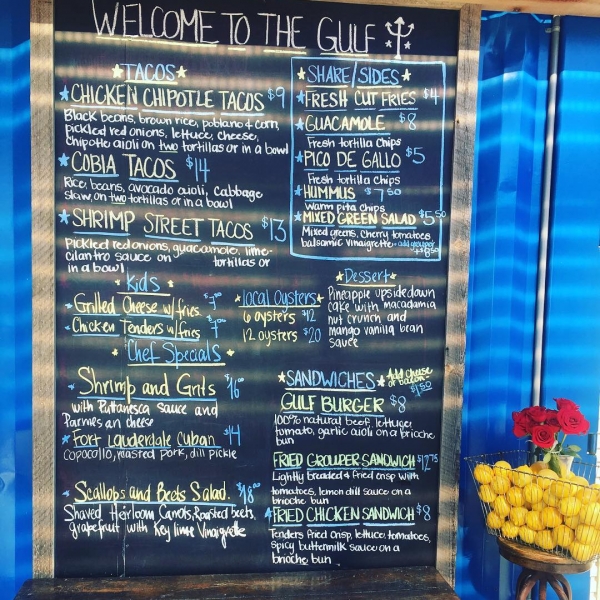 WELCOME TO THE GULF
TACOS
CHICKEN CHIPOTLE TACOS $9
Black beans, brown rice, poblano & corn,
pickled red onions, lettuce, cheese,
chipotle aioli on two tortillas or in a bowl
COBIA TACOS $14
Rice, beans, avocado aioli, cabbage
slaw, on two tortillas or in a bowl
SHRIMP STREET TACOS $13
Pickled red onions, guacamole, lime-
cilantro sauce on tortillas or
in a bowl
SHARE/SIDES
FRESH CUT FRIES $4
GUACAMOLE $8
Fresh tortilla chips
PICO DE GALLO $5
Fresh tortilla chips
HUMMUS $7.50
Warm pita chips
MIXED GREEN SALAD $5.50
Mixed greens, cherry tomatoes,
balsamic vinaigrette - add grouper
+$8.50
Kids
Grilled Cheese w/fries
Chicken Tenders w/fries
local oysters
6 oysters $12
12 oysters $20
Dessert
Pineapple upsidedown
cake with macadamia
nut crunch and
mango vanilla bean
sauce
Chef Specials
Shrimp and Grits $16
with Puttanesca sauce and
Parmesan cheese
Fort Lauderdale Cuban $14
Copocollo, roasted pork, dill pickle
Scallops and Beets Salad $18
Shaved Heirloom Carrots, Roasted beets,
grapefruit with Key lime Vinaigrette
SANDWICHES
Add cheese
or bacon -
$1.50
GULF BURGER $8
100% natural beef, lettuce,
tomato, garlic aioli on a brioche
bun
FRIED GROUPER SANDWICH $12.75
Lightly breaded & fried crisp with
tomatoes, lemon dill sauce on a
brioche bun
FRIED CHICKEN SANDWICH $8
Tenders fried crisp, lettuce, tomatoes,
spicy buttermilk sauce on a
brioche bun